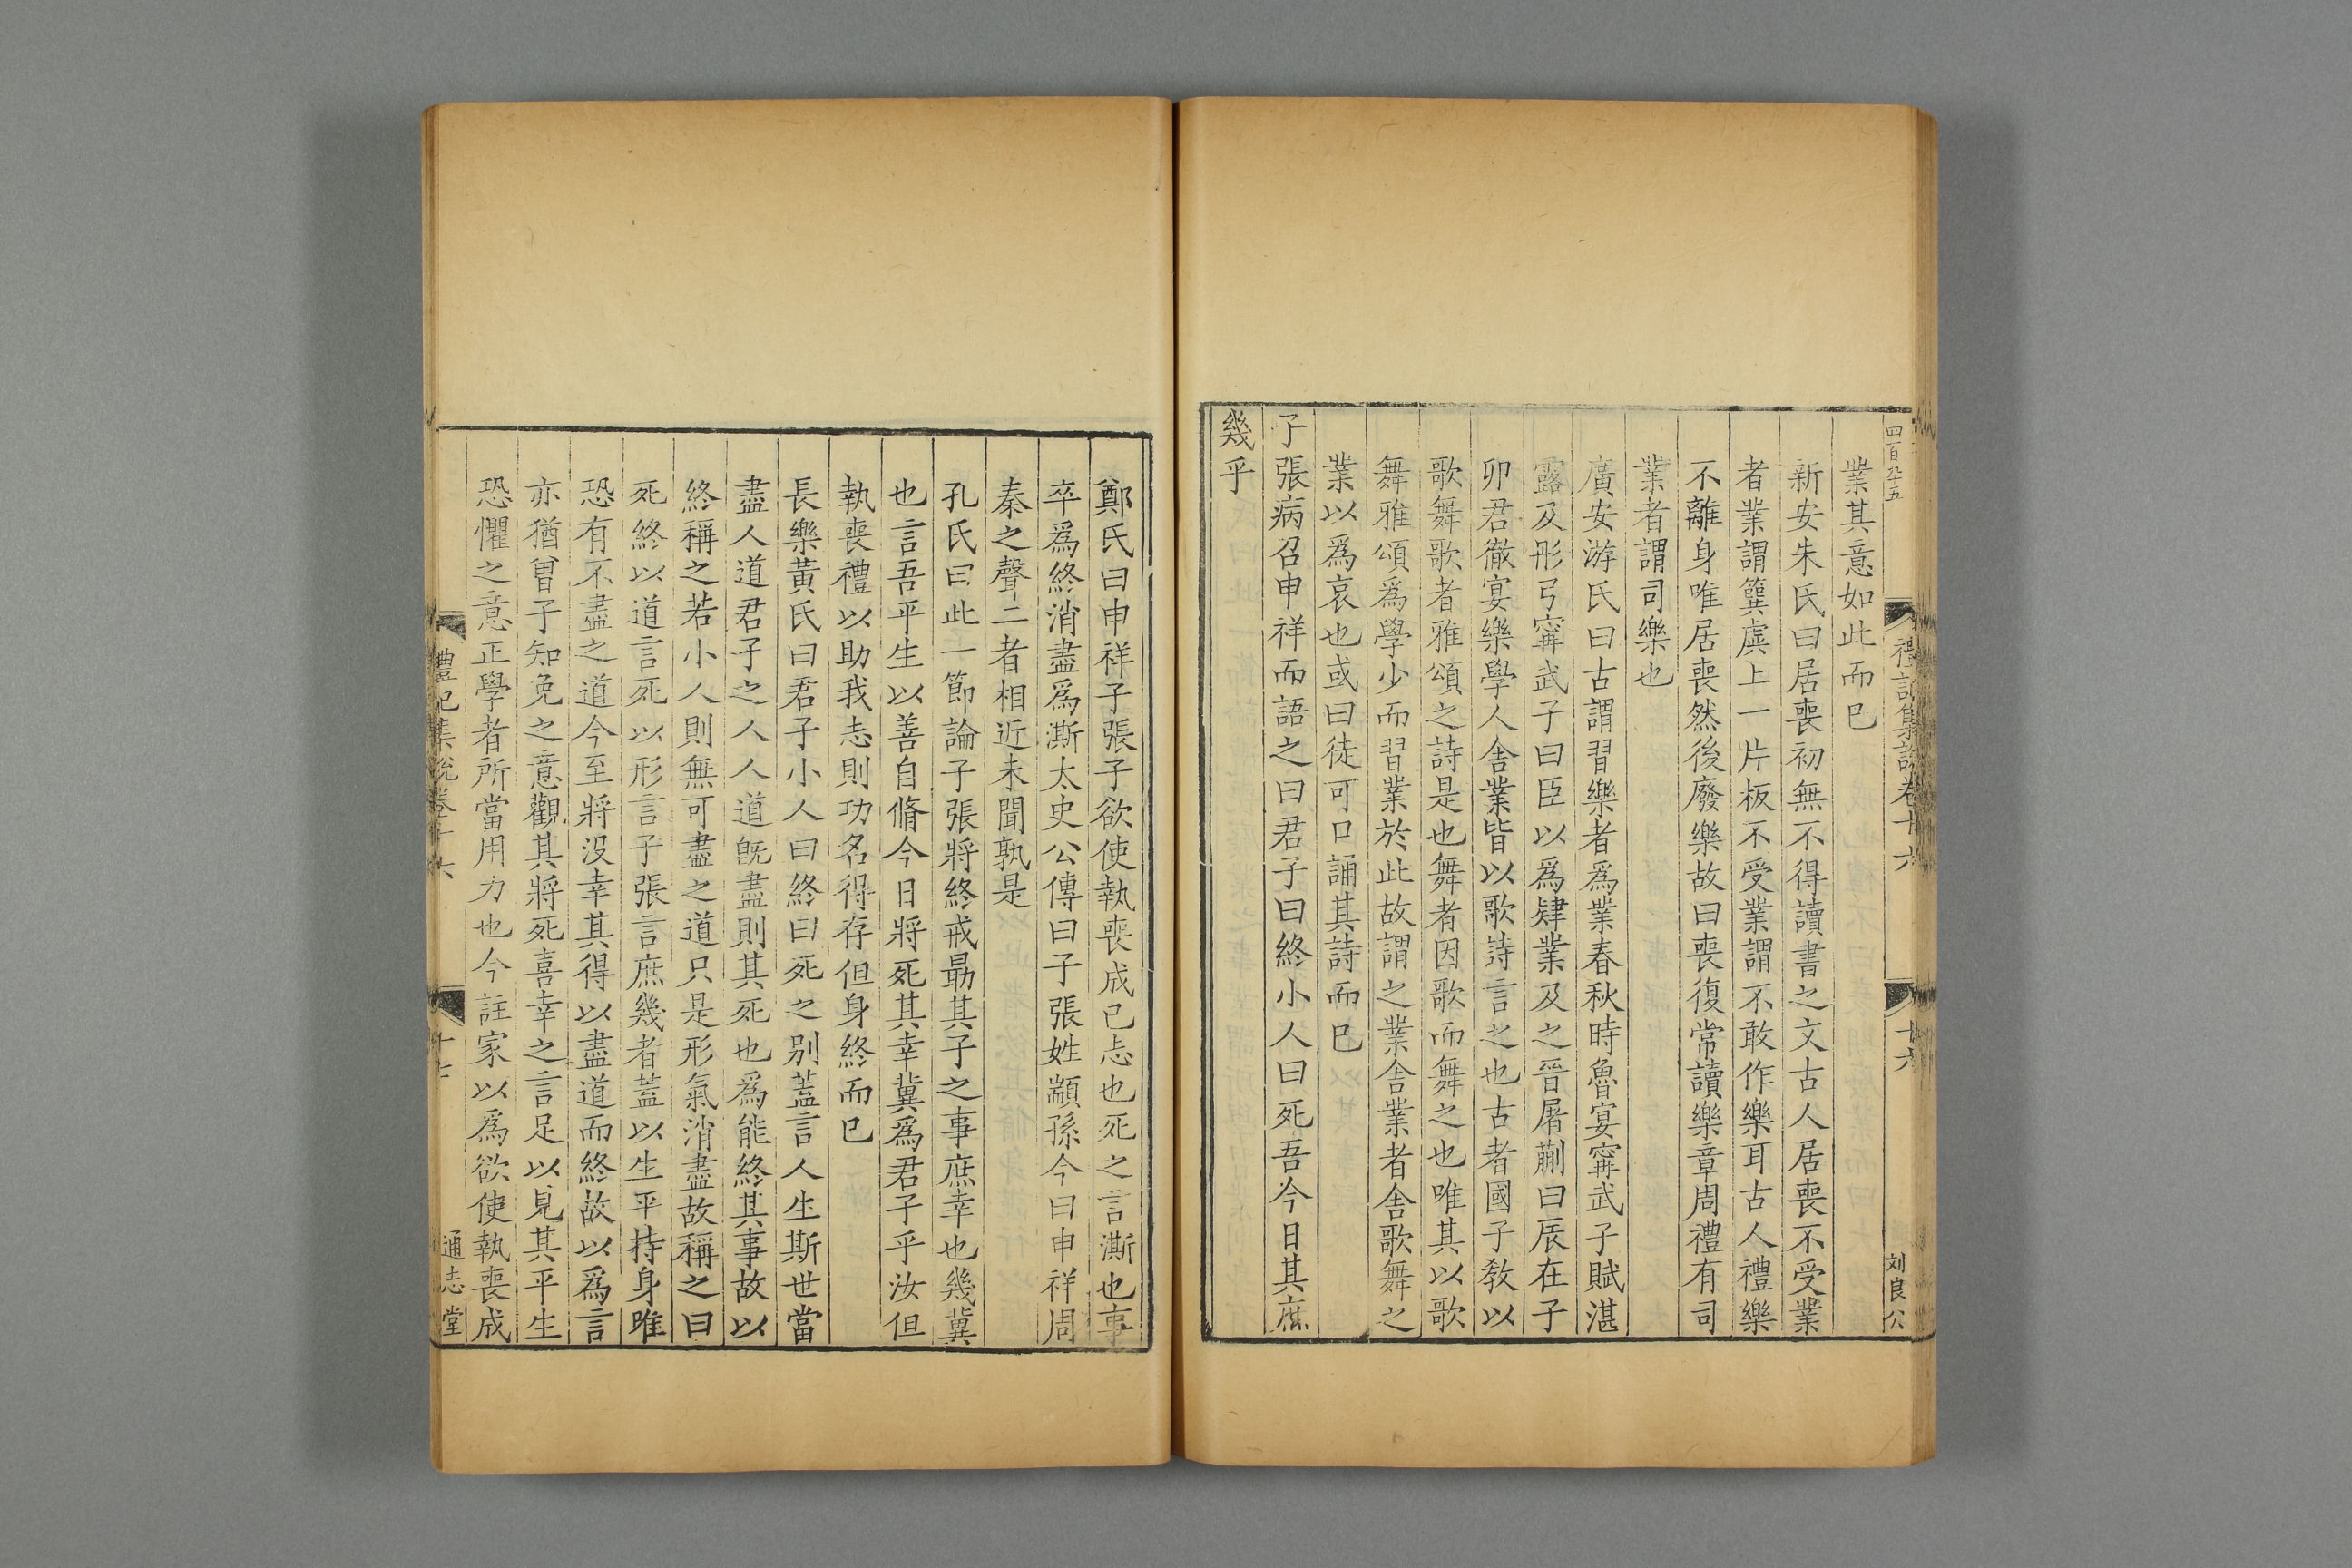 四百九十五
禮記集說卷十六
十六
刘良公
業其意如此而已
新安朱氏曰居喪初無不得讀書之文古人居喪不受業
者業謂簨虡上一片板不受業謂不敢作樂耳古人禮樂
不離身唯居喪然後廢樂故曰喪復常讀樂章周禮有司
業者謂司樂也
廣安游氏曰古謂習樂者爲業春秋時魯宴甯武子賦湛
露及彤弓甯武子曰臣以爲肄業及之晉屠蒯曰辰在子
卯君徹宴樂學人舍業皆以歌詩言之也古者國子教以
歌舞歌者雅頌之詩是也舞者因歌而舞之也唯其以歌
舞雅頌爲學少而習業於此故謂之業舍業者舍歌舞之
業以爲哀也或曰徒可口誦其詩而已
子張病召申祥而語之曰君子曰終小人曰死吾今日其庶
幾乎
鄭氏曰申祥子張子欲使執喪成已志也死之言澌也事
卒爲終消盡爲澌太史公傳曰子張姓顓孫今曰申祥周
秦之聲二者相近未聞孰是
孔氏曰此一節論子張將終戒勗其子之事庶幸也幾冀
也言吾平生以善自脩今日將死其幸冀爲君子乎汝但
執喪禮以助我志則功名得存但身終而已
長樂黃氏曰君子小人曰終曰死之別蓋言人生斯世當
盡人道君子之人人道旣盡則其死也爲能終其事故以
終稱之若小人則無可盡之道只是形氣消盡故稱之曰
死終以道言死以形言子張言庶幾者蓋以生平持身唯
恐有不盡之道今至將沒幸其得以盡道而終故以爲言
亦猶曾子知免之意觀其將死喜幸之言足以見其平生
恐懼之意正學者所當用力也今註家以爲欲使執喪成
禮記集說卷十六
十七
通志堂